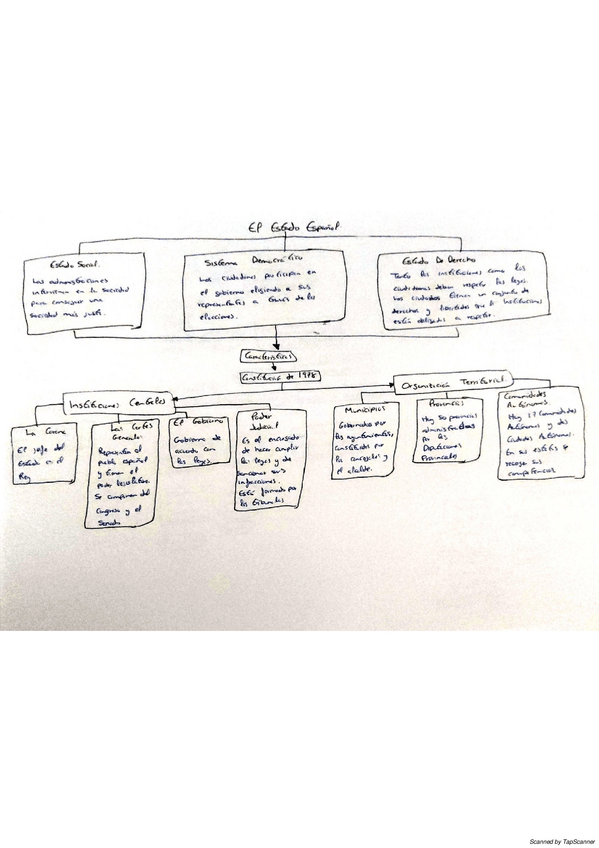 El Estado Español
Estado Social.
Las administraciones
intervienen en la sociedad
para conseguir una
sociedad más justa.
Sistema Democrático
Los ciudadanos participan en
el gobierno eligiendo a sus
representantes a través de las
elecciones.
Estado De Derecho
Tanto las instituciones como los
ciudadanos deben respetar las leyes.
Los ciudadanos tienen un conjunto de
derechos y libertades que las instituciones
están obligadas a respetar.
Características
Constitución de 1978
Instituciones Centrales
Organización Territorial
La Corona
El jefe del
Estado es el
Rey
Las Cortes
Generales.
Representan al
pueblo español
y tienen el
poder legislativo.
Se componen del
Congreso y el
Senado
El Gobierno
Gobierna de
acuerdo con
las leyes
Poder
Judicial
Es el encargado
de hacer cumplir
las leyes y de
sancionar sus
infracciones.
Está formado por
los tribunales
Municipios
Gobernados por
los ayuntamientos,
constituidos por
los concejales y
el alcalde.
Provincias
Hay 50 provincias
administradas
por las
Diputaciones
Provinciales
Comunidades
Autónomas.
Hay 17 Comunidades
Autónomas y dos
Ciudades Autónomas.
En sus estatutos se
recoge sus
competencias
Scanned by TapScanner